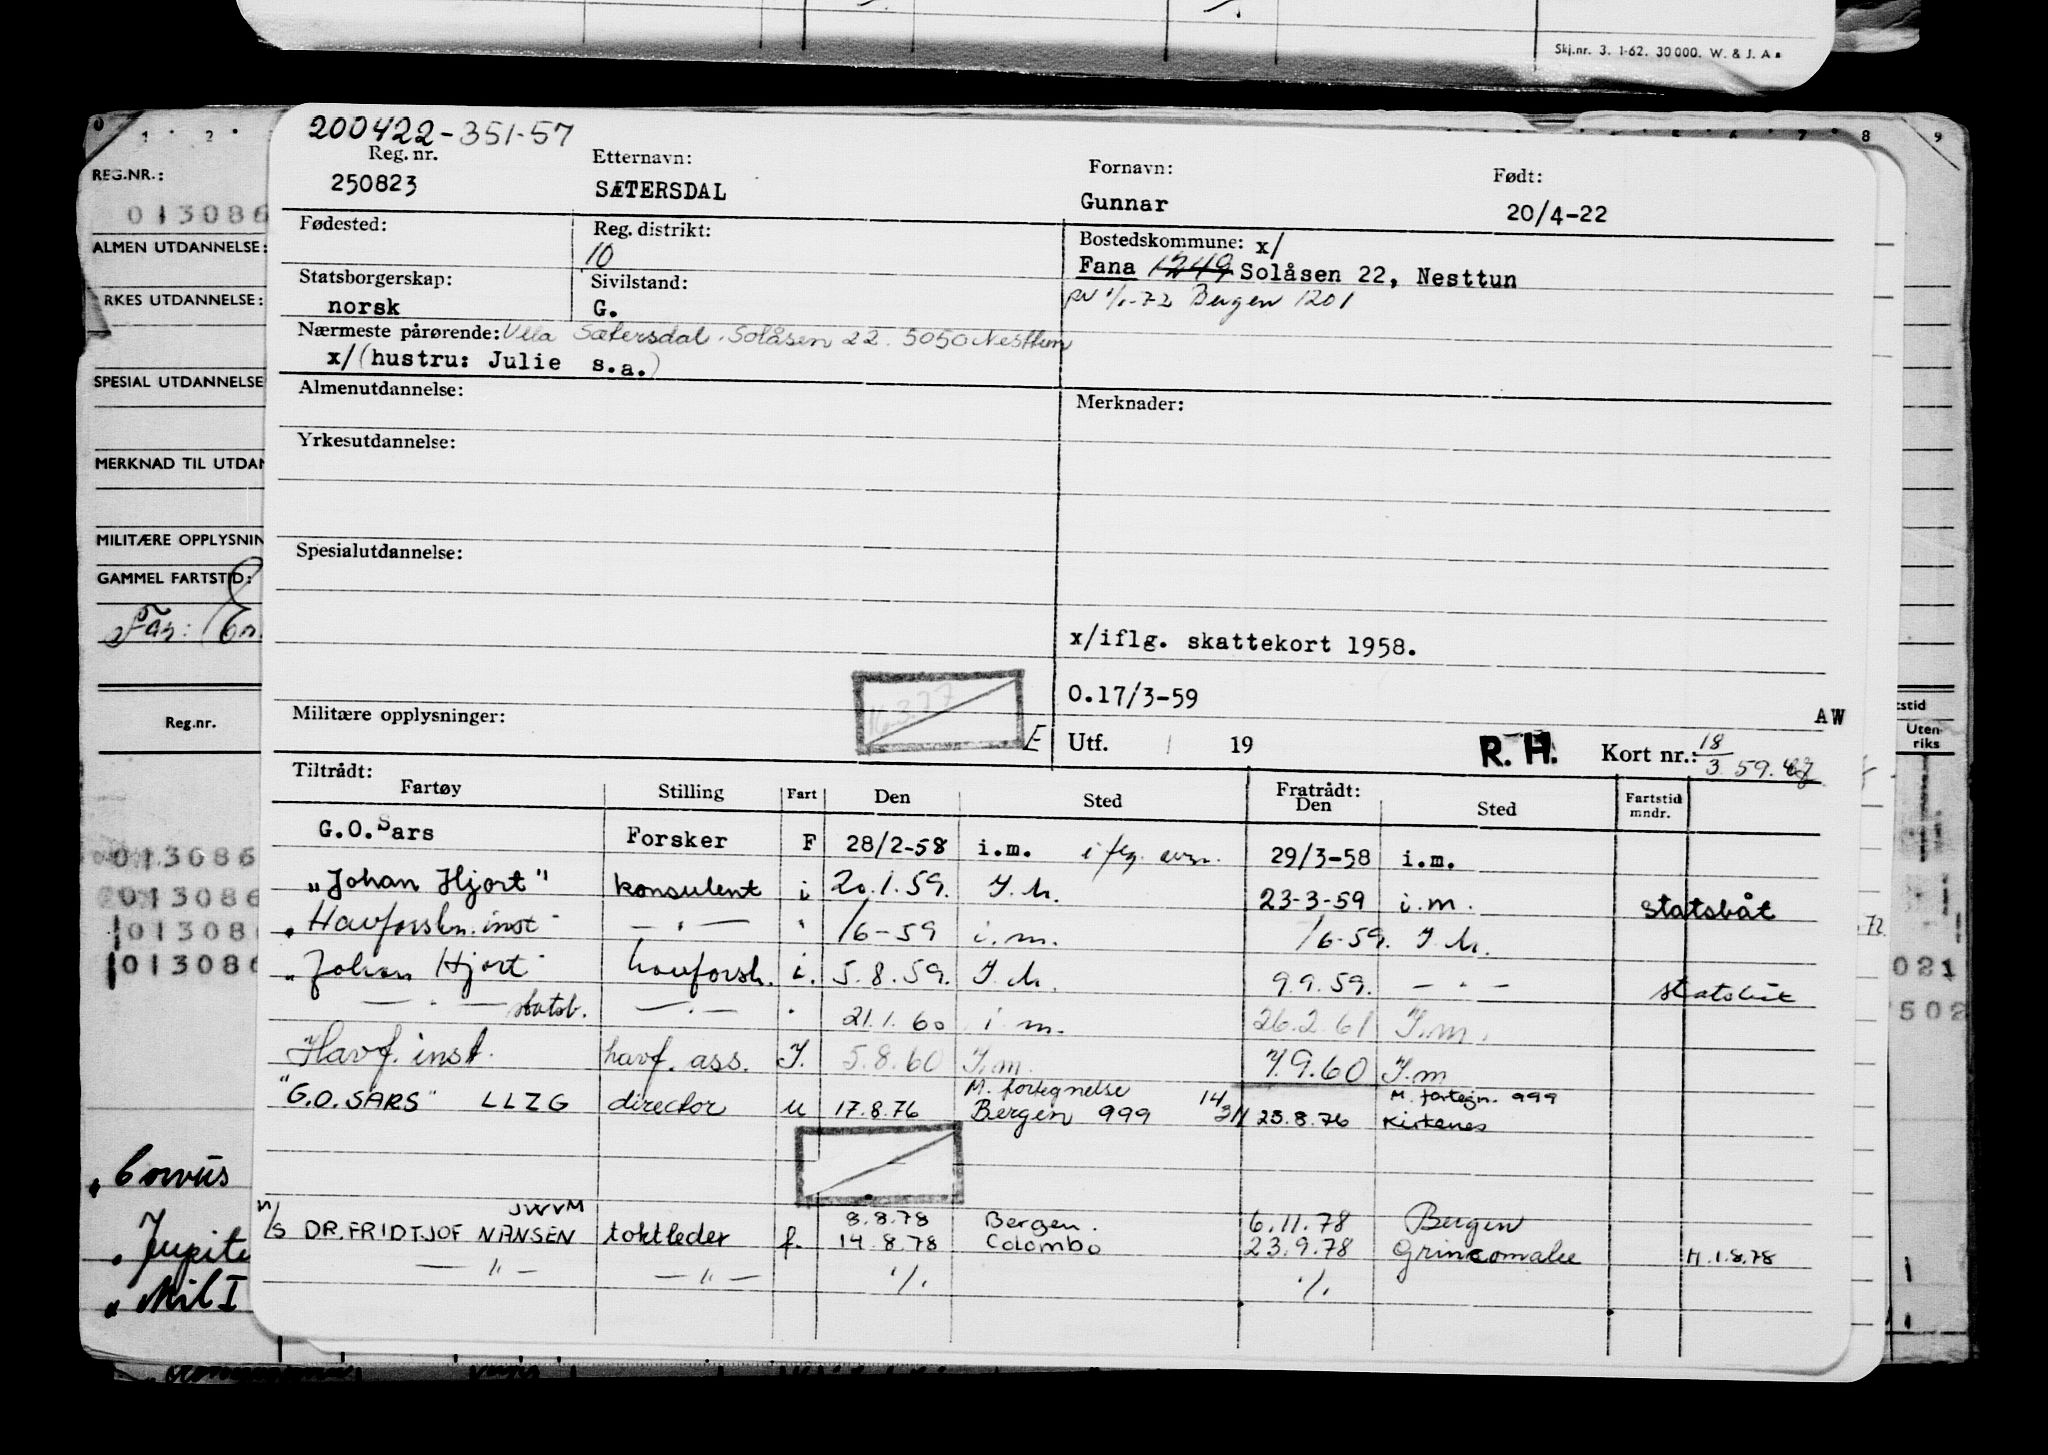 Skj.nr. 3. 1-62. 30 000. W. & J. A s
REG.NR.:
013086
ALMEN UTDANNELSE:
RKES UTDANNELSE:
SPESIAL UTDANNELSE
MERKNAD TIL UTDAN
MILITÆRE OPPLYSNIN
GAMMEL FARTSTID:
Far:
Reg.nr.
013086
013086
013086
013086
"Corvus
"Jupite
"Mil I
200422-351-57
Reg. nr. Etternavn: Fornavn: Født:
250823 SÆTERSDAL Gunnar 20/4-22
Fødested: Reg. distrikt: Bostedskommune: x/
10 Fana 1249 Solåsen 22, Nesttun
Statsborgerskap: Sivilstand:
norsk G. pv 1/1-72 Bergen 1201
Nærmeste pårørende: Ulla Sætersdal. Solåsen 22. 5050 Nesttun
x/(hustru: Julie s.a.)
Almenutdannelse: Merknader:
Yrkesutdannelse:
Spesialutdannelse:
x/iflg. skattekort 1958.
16.3.77
O.17/3-59
Militære opplysninger: E Utf. / 19 R.H. Kort nr.: 18/3.59. AW
Tiltrådt: Fratrådt:
Fartøy Stilling Fart Den Sted Den Sted Fartstid mndr.
G.O.Sars Forsker F 28/2-58 i.m. iflg. 29/3-58 i.m.
"Johan Hjort" konsulent i 20.1.59. I.M. 23-3-59 i.m. Statsbåt
"Havforskn. inst" — " — " /6-59 i.m. /6-59. I.M.
"Johan Hjort" havforsk. i. 5.8.59. I.M. 9.9.59. — " — statsbåt
— " — statsb. — " — " 21.1.60 i.m. 26.2.61 I.m.
Havf. inst. havf. ass. I. 5.8.60 I.m. 7.9.60 I.m
"G.O. SARS" LLZG director u 17.8.76 M. fortegnelse Bergen 999 14/311 25.8.76 M. fortegn. 999 Kirkenes
JWVM 8.8.78 Bergen. 6.11.78 Bergen
M/S DR. FRIDTJOF NANSEN toktleder f. 14.8.78 Colombo 23.9.78 Grincomalee H.1.8.78
— " — — " — ·/· ·/·
tstid
Uten-
riks
72
021
502